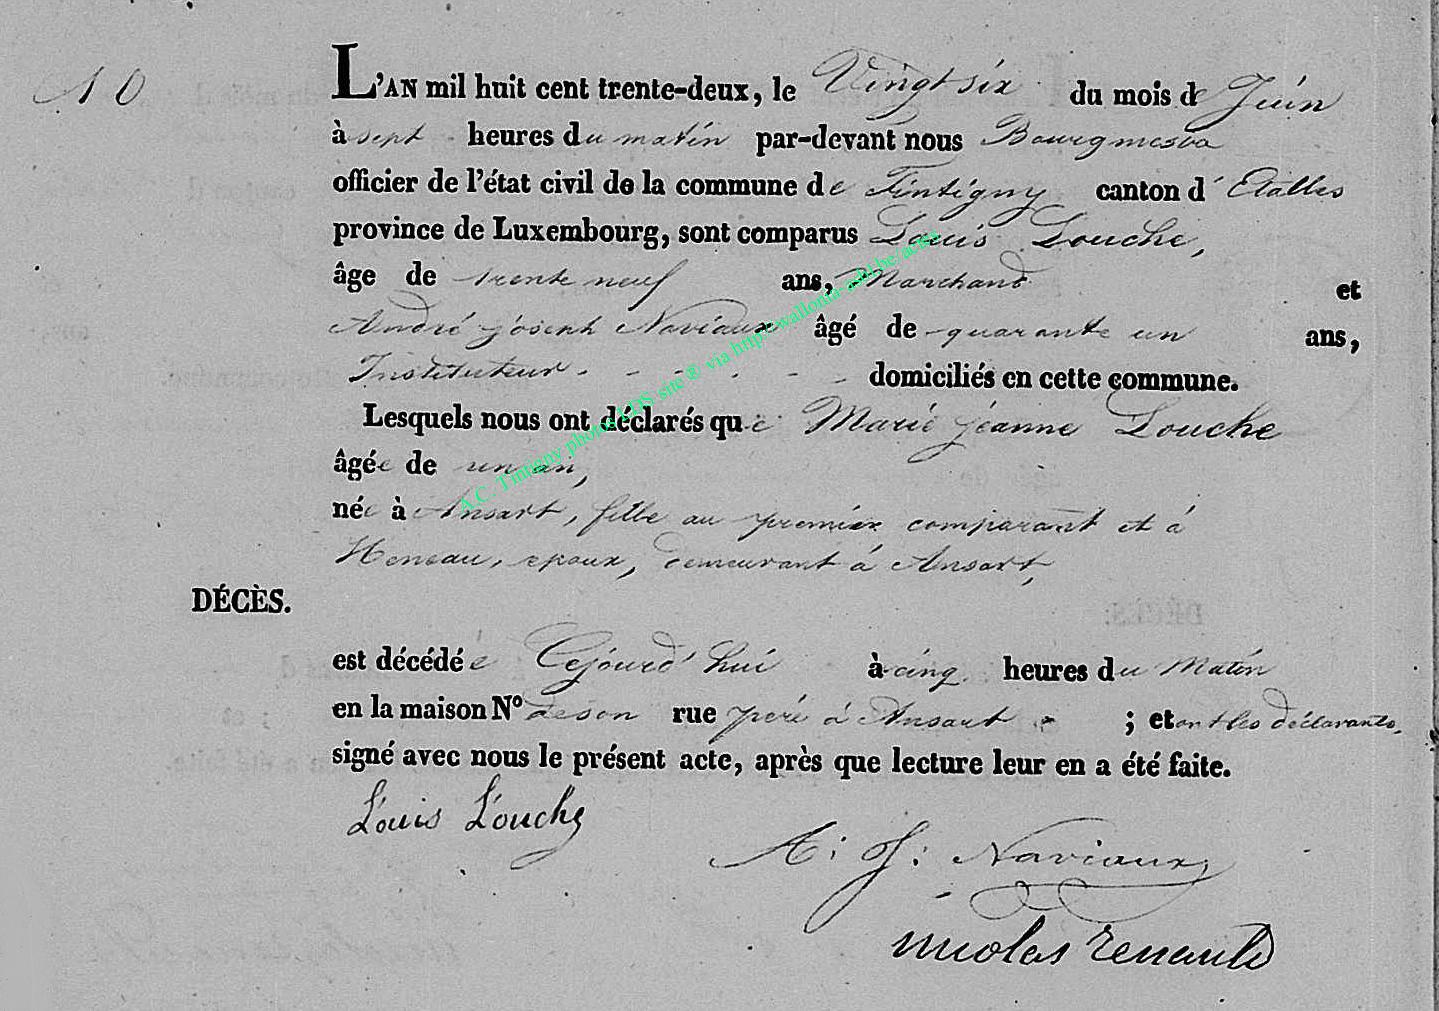 10
L'AN mil huit cent trente-deux, le Vingt six du mois de Juin
à sept heures du matin par-devant nous Bourgmestre
officier de l'état civil de la commune de Tintigny canton d' Etalles
province de Luxembourg, sont comparus Louis Louche,
âge de trente neuf ans, Marchand et
André joseph Naviaux âgé de quarante un ans,
Instituteur - - - - - - domiciliés en cette commune.
Lesquels nous ont déclarés que Marie jeanne Louche
âgée de un an,
née à Ansart, fille au premier comparant et à
Heneau, epoux, demeurant à Ansart,
DÉCÈS.
est décédée Cejourd'hui à cinq heures du Matin
en la maison N° de son rue père à Ansart ; et ont les déclarants,
signé avec nous le présent acte, après que lecture leur en a été faite.
Louis Louche
A: J: Naviaux
nicolas Renauld
A.C. Tintigny photos LDS site ® via http://wallonia-asbl.be/actes